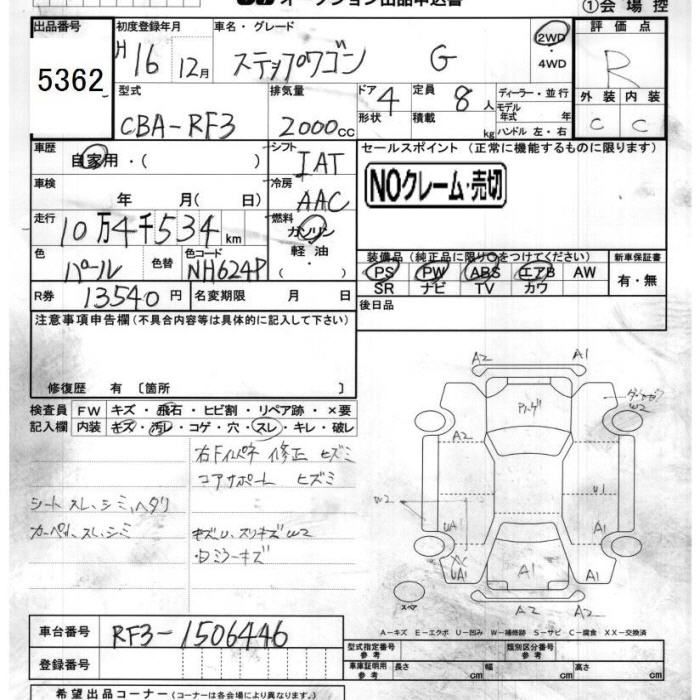 オークション出品申込書
①会場控
出品番号 初度登録年月 車名・グレード 評価点
5362 H16 12月 ステップワゴン G 2WD・4WD R
型式 排気量 ドア 4 定員 8人 ディーラー・並行 外装 内装
CBA-RF3 2000cc 形状 積載 kg モデル年式 年 C C
ハンドル 左・右
車歴 シフト セールスポイント (正常に機能するものに限ります)
自家用・( ) IAT
車検 冷房 NOクレーム・売切
年 月( 日) AAC
走行 燃料
10万4千534km ガソリン
軽油
・( )
色 色替 色コード 装備品(純正品に限り○をつけてください) 新車保証書
パール NH624P PS PW ABS エアB AW 有・無
SR ナビ TV カワ
R券 13540円 名変期限 月 日 後日品
注意事項申告欄(不具合内容等は具体的に記入して下さい)
修復歴 有 [箇所 ]
検査員 FW キズ・飛石・ヒビ割・リペア跡・×要
記入欄 内装 キズ・汚レ・コゲ・穴・スレ・キレ・破レ
右Fインパネ 修正 ヒズミ
コアサポート ヒズミ
シート スレ、シミ、ヘタリ
カーペット、スレ、シミ キズU、スリキズW2
ミラーキズ
A2 A1
W2
A2
W2
U1
UA A1
UA1 A1 A1
A2 A2
スペア
A-キズ E-エクボ U-凹み W-補修跡 S-サビ C-腐食 XX-交換済
車台番号 RF3-1506446
登録番号
型式指定番号 参考 類別区分番号 参考
車庫証明用 参考 長さ cm 幅 cm 高さ cm
希望出品コーナー(コーナーは各会場により異なります。)